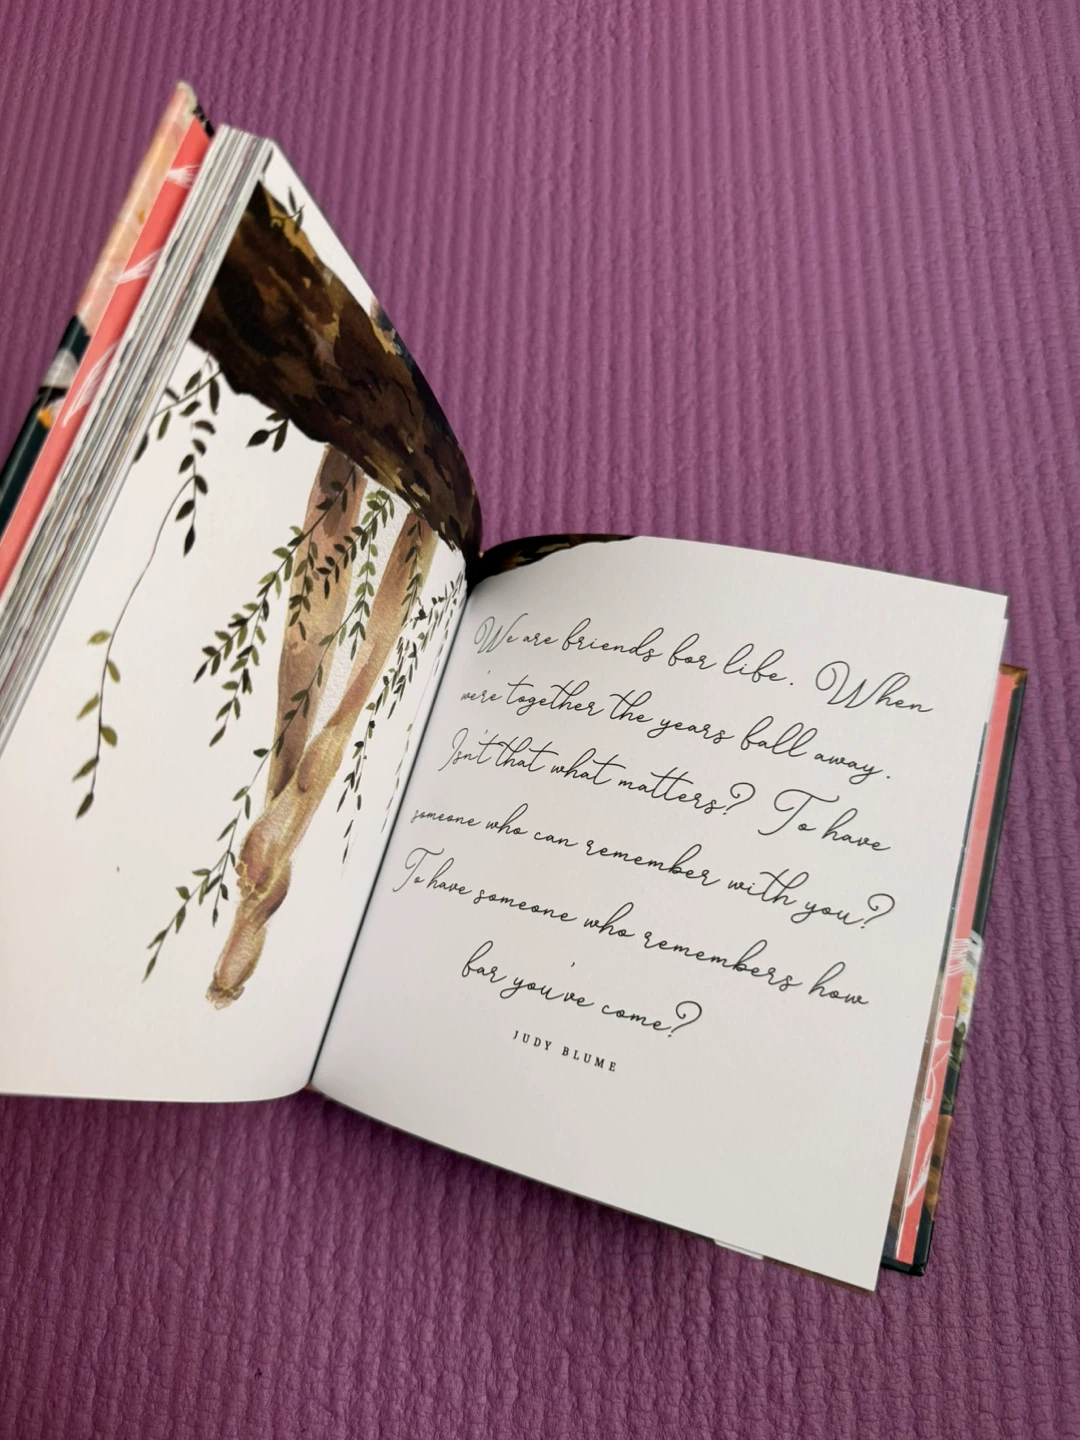 We are friends for life. When
we're together the years fall away.
Isn't that what matters? To have
someone who can remember with you?
To have someone who remembers how
far you've come?
JUDY BLUME